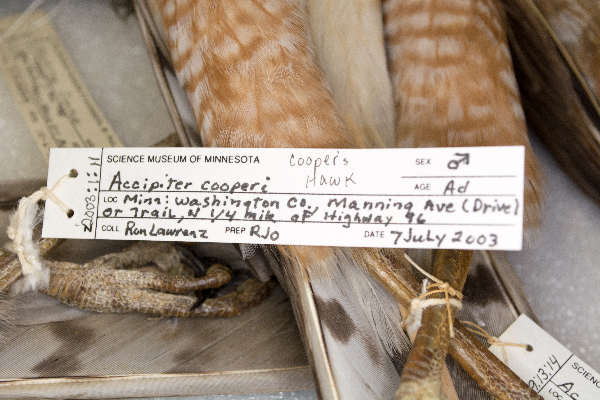 SCIENCE MUSEUM OF MINNESOTA
Cooper's
Hawk
SEX ♂
Accipiter cooperi
AGE Ad
LOC Minn: Washington Co., Manning Ave (Drive)
or Trail, N 1/4 mile of Highway 96
COLL Ron Lawrenz PREP RJO DATE 7 July 2003
SCIENC
A
LOC